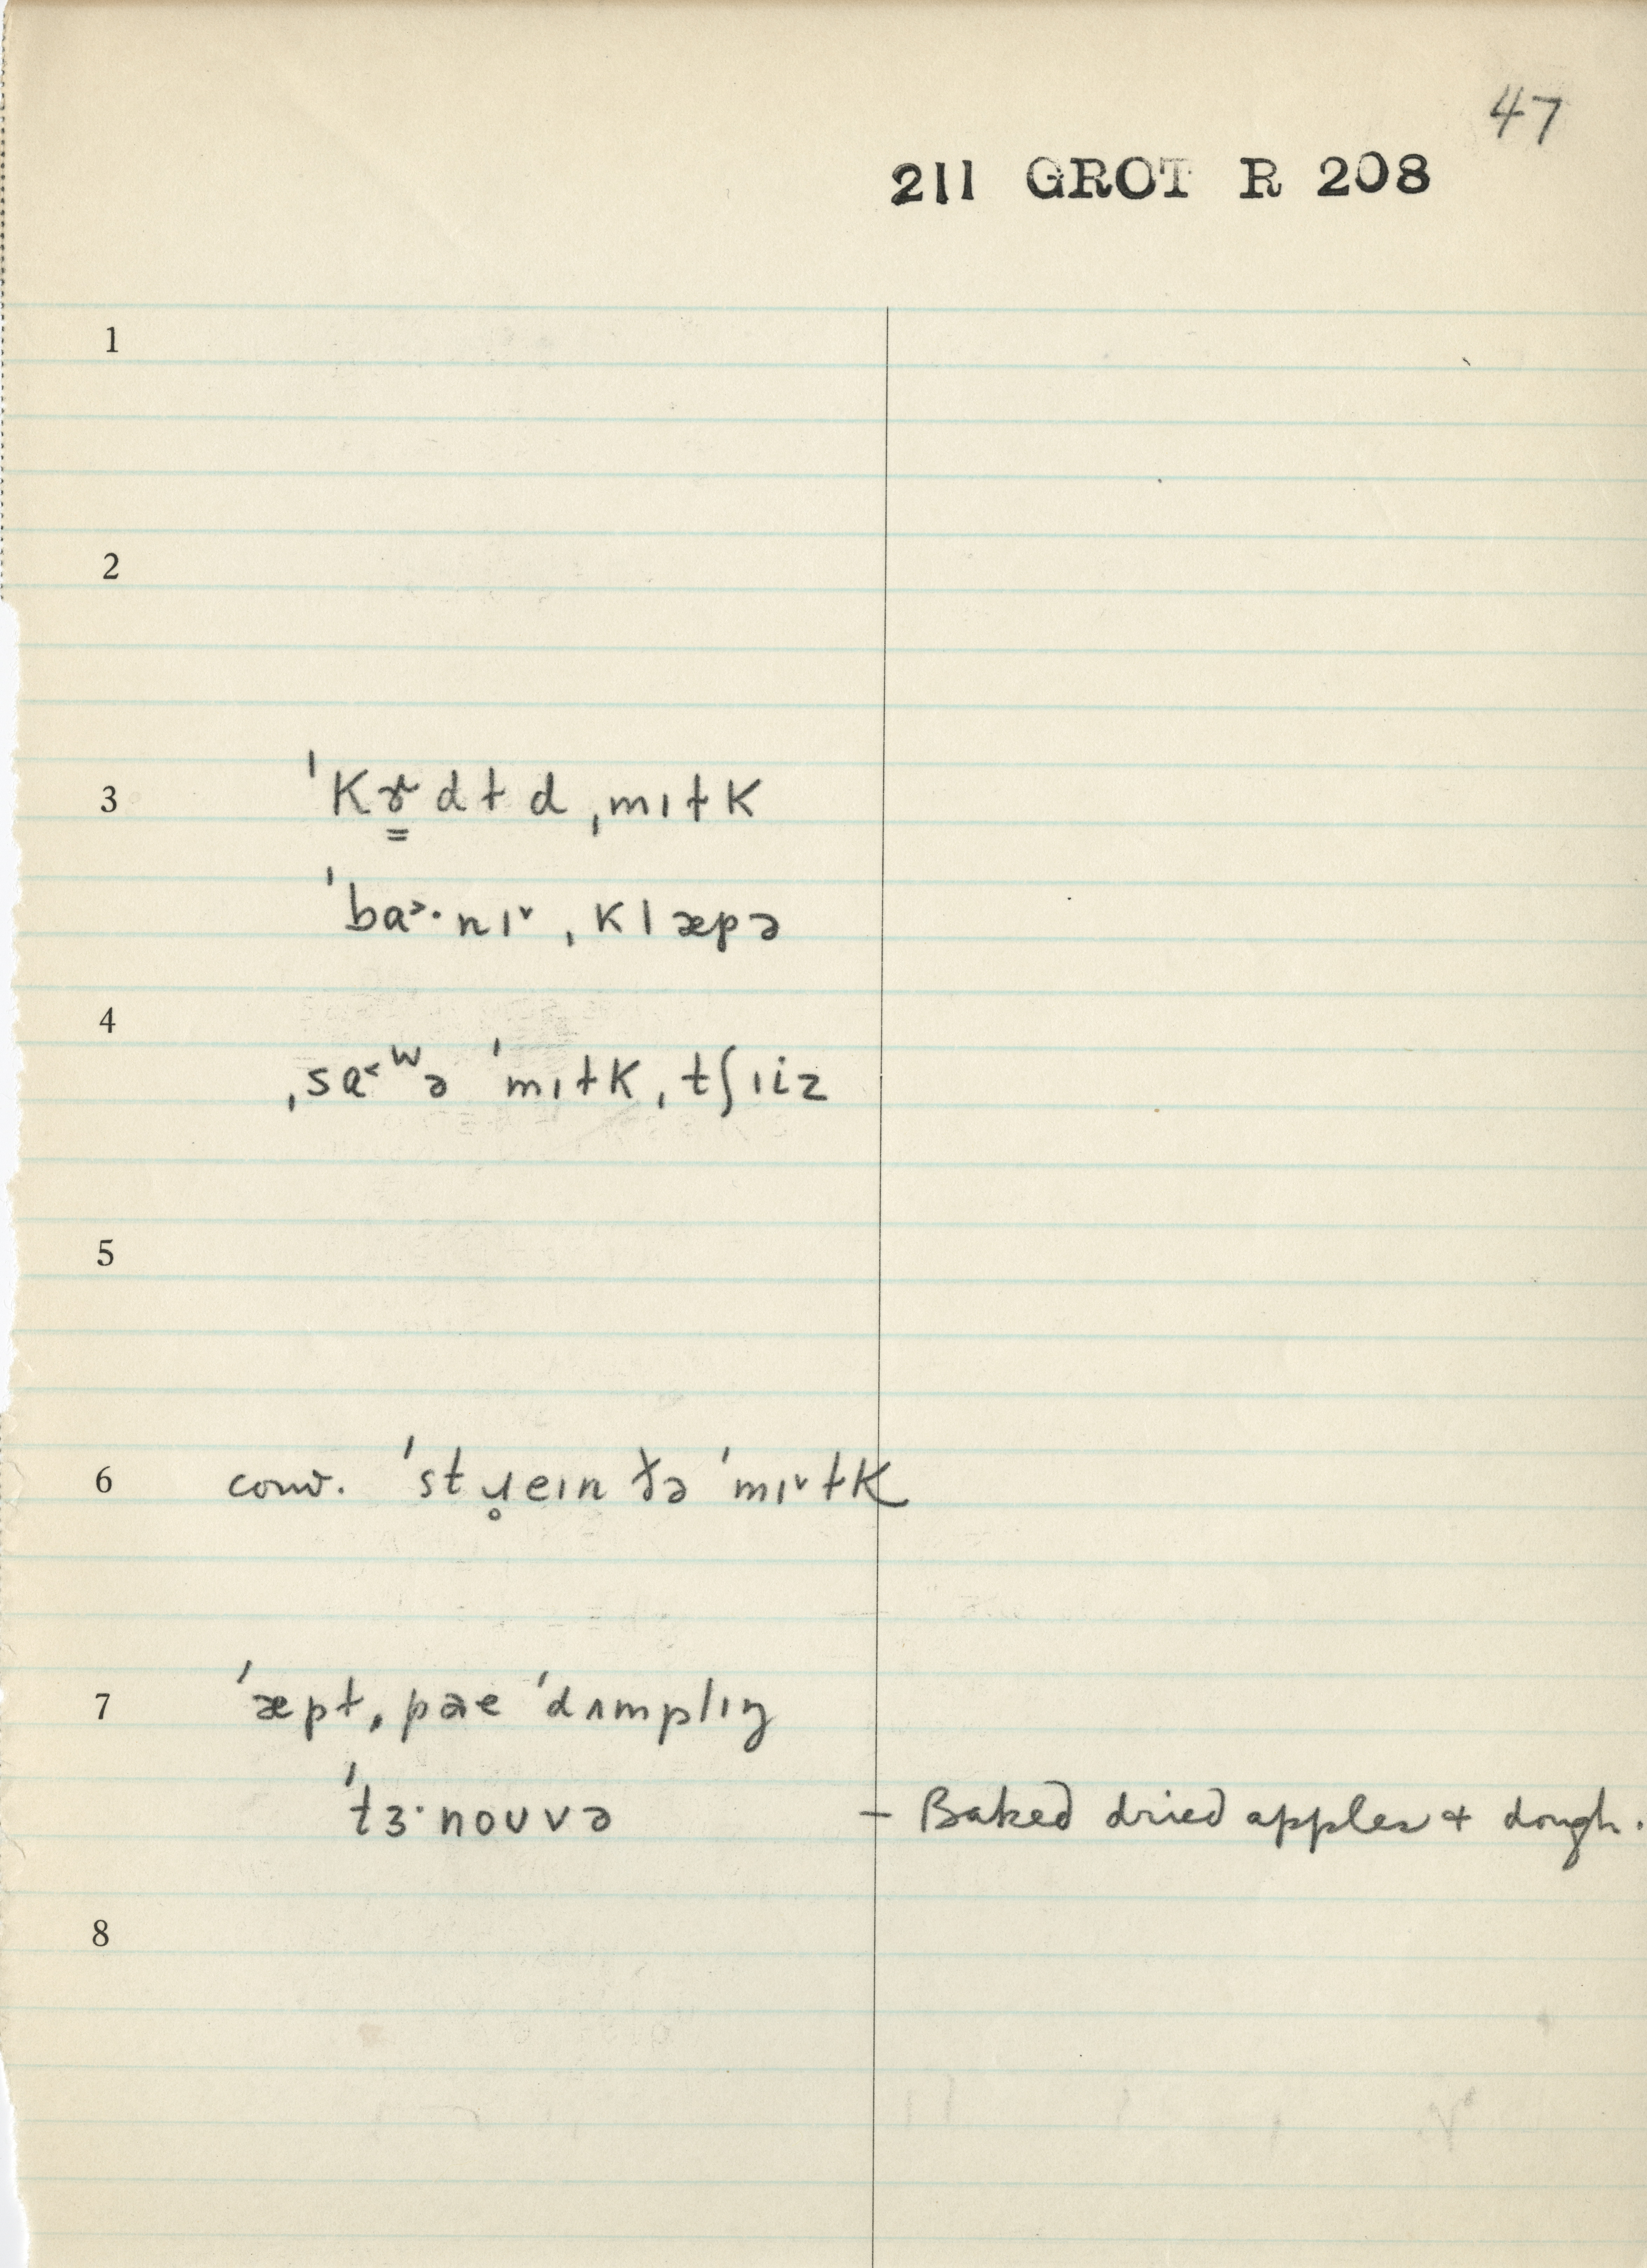 47
211 GROT R 208
1
2
3 ˈkɤ̳dɫd ˌmɪɫk
ˈba˃·nɪ˅ ˌklæpə
4
ˌsɑ˂ʷə ˈmɪɫk ˌtʃɪiz
5
6 conv. ˈstɹ̥eɪn ðə ˈmɪ˅ɫk
7 ˈæpɫ ˌpae ˈdʌmplɪŋ
ˈtɜ·noʊvə – Baked dried apples + dough.
8